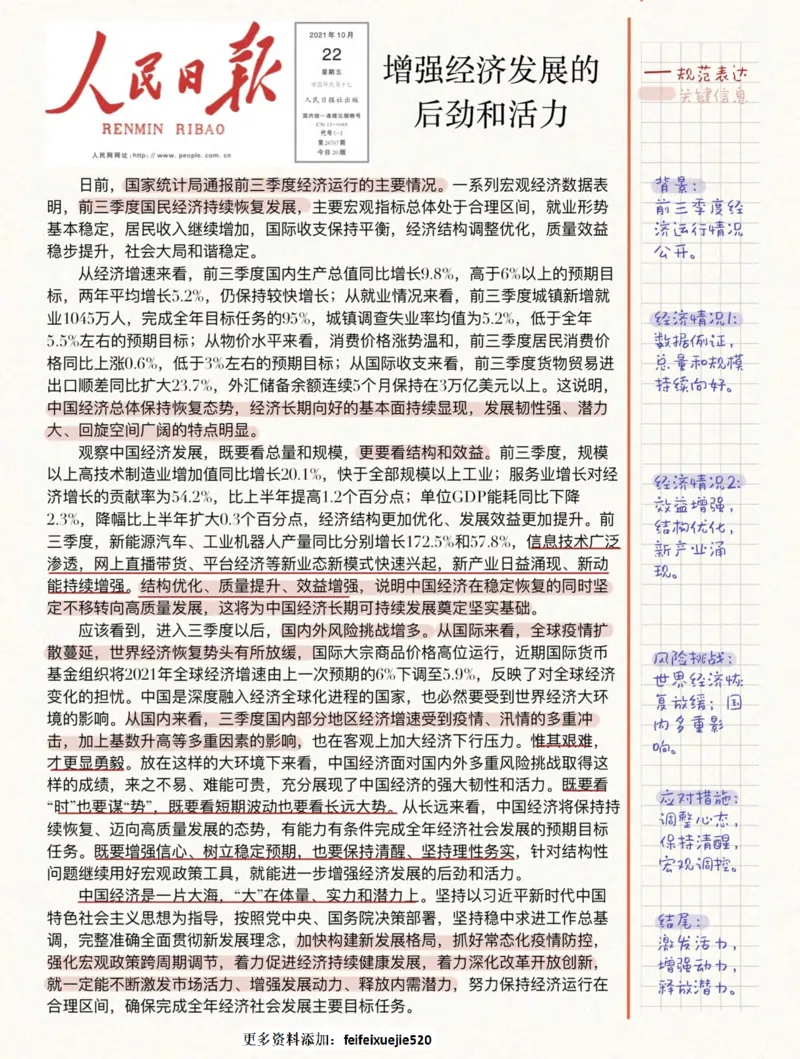 人民日报
RENMIN RIBAO
人民网网址:http://www.people.com.cn
2021年10月
22
星期五
人民日报社出版
国内统一连续出版物号
代号1-1
今日20版
增强经济发展的
后劲和活力
一规范表达
关键信息
日前，国家统计局通报前三季度经济运行的主要情况。一系列宏观经济数据表
明，前三季度国民经济持续恢复发展，主要宏观指标总体处于合理区间，就业形势
基本稳定，居民收入继续增加，国际收支保持平衡，经济结构调整优化，质量效益
稳步提升，社会大局和谐稳定。
从经济增速来看，前三季度国内生产总值同比增长9.8%，高于6%以上的预期目
标，两年平均增长5.2%，仍保持较快增长；从就业情况来看，前三季度城镇新增就
业1045万人，完成全年目标任务的95%，城镇调查失业率均值为5.2%，低于全年
5.5%左右的预期目标；从物价水平来看，消费价格涨势温和，前三季度居民消费价
格同比上涨0.6%，低于3%左右的预期目标；从国际收支来看，前三季度货物贸易进
出口顺差同比扩大23.7%，外汇储备余额连续5个月保持在3万亿美元以上。这说明，
中国经济总体保持恢复态势，经济长期向好的基本面持续显现，发展韧性强、潜力
大、回旋空间广阔的特点明显。
观察中国经济发展，既要看总量和规模，更要看结构和效益。前三季度，规模
以上高技术制造业增加值同比增长20.1%，快于全部规模以上工业；服务业增长对经
济增长的贡献率为54.2%，比上半年提高1.2个百分点；单位GDP能耗同比下降
2.3%，降幅比上半年扩大0.3个百分点，经济结构更加优化、发展效益更加提升。前
三季度，新能源汽车、工业机器人产量同比分别增长172.5%和57.8%，信息技术广泛
渗透，网上直播带货、平台经济等新业态新模式快速兴起，新产业日益涌现、新动
能持续增强。结构优化、质量提升、效益增强，说明中国经济在稳定恢复的同时坚
定不移转向高质量发展，这将为中国经济长期可持续发展奠定坚实基础。
应该看到，进入三季度以后，国内外风险挑战增多。从国际来看，全球疫情扩
散蔓延，世界经济恢复势头有所放缓，国际大宗商品价格高位运行，近期国际货币
基金组织将2021年全球经济增速由上一次预期的6%下调至5.9%，反映了对全球经济
变化的担忧。中国是深度融入经济全球化进程的国家，也必然要受到世界经济大环
境的影响。从国内来看，三季度国内部分地区经济增速受到疫情、汛情的多重冲
击，加上基数升高等多重因素的影响，也在客观上加大经济下行压力。惟其艰难，
才更显勇毅。放在这样的大环境下来看，中国经济面对国内外多重风险挑战取得这
样的成绩，来之不易、难能可贵，充分展现了中国经济的强大韧性和活力。既要看
“时”也要谋“势”，既要看短期波动也要看长远大势。从长远来看，中国经济将保持持
续恢复、迈向高质量发展的态势，有能力有条件完成全年经济社会发展的预期目标
任务。既要增强信心、树立稳定预期，也要保持清醒、坚持理性务实，针对结构性
问题继续用好宏观政策工具，就能进一步增强经济发展的后劲和活力。
中国经济是一片大海，“大”在体量、实力和潜力上。坚持以习近平新时代中国
特色社会主义思想为指导，按照党中央、国务院决策部署，坚持稳中求进工作总基
调，完整准确全面贯彻新发展理念，加快构建新发展格局，抓好常态化疫情防控，
强化宏观政策跨周期调节，着力促进经济持续健康发展，着力深化改革开放创新，
就一定能不断激发市场活力、增强发展动力、释放内需潜力，努力保持经济运行在
合理区间，确保完成全年经济社会发展主要目标任务。
背景：
前三季度经
济运行情况
公开。
经济情况1:
数据例证，
总量和规模
持续向好。
经济情况2:
效益增强，
结构优化，
新产业涌
现。
风险挑战：
世界经济恢
复放缓；国
内多重影
响。
应对措施：
调整心态，
保持清醒，
宏观调控。
结尾：
激发活力，
增强动力，
释放潜力。
更多资料添加：feifeixuejie520